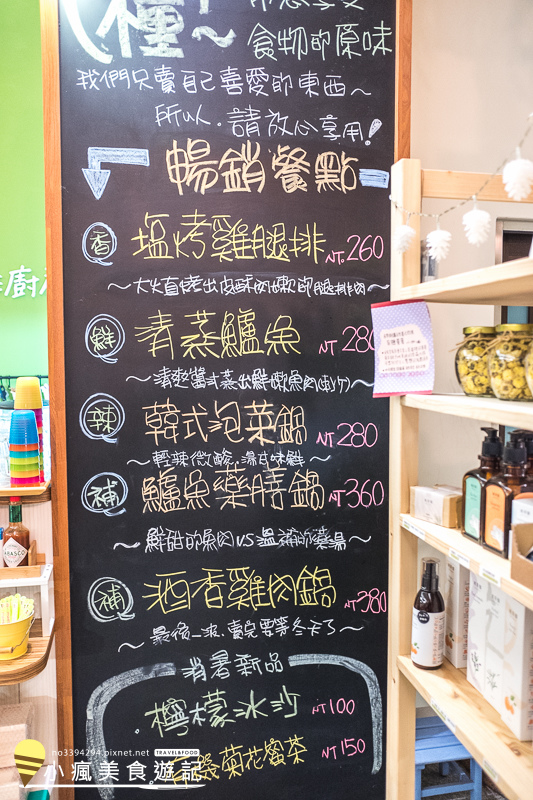 種！～
食物的原味
我們只賣自己喜愛的東西～
所以，請放心享用！
暢銷餐點
香 塩烤雞腿排 NT.260
～大火直烤出皮酥肉嫩的腿排肉～
鮮 清蒸鱸魚 NT 280
～清爽醬式蒸出鮮嫩魚肉
辣 韓式泡菜鍋 NT 280
～輕辣微酸．湯甘味鮮～
補 鱸魚藥膳鍋 NT 360
～鮮甜的魚肉VS溫補的藥湯～
補 酒香雞肉鍋 NT 280
～最後一波，賣完要等冬天了～
消暑新品
檸檬冰沙 NT 100
菊花蜜茶 NT 150
廚
no3394294.pixnet.net TRAVEL&FOOD
小瘋美食遊記